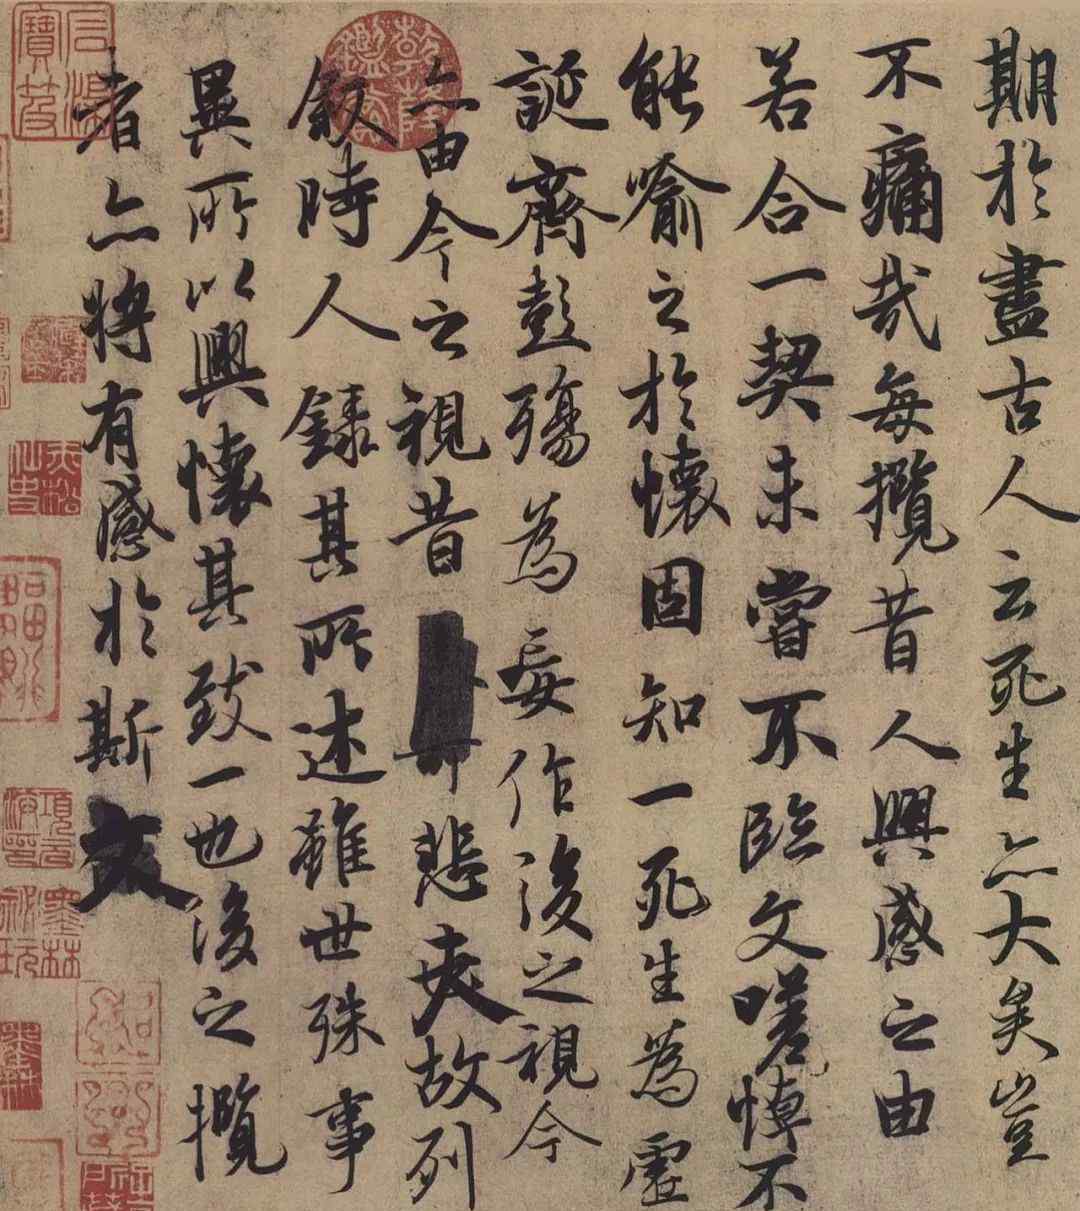 期於盡古人云死生亦大矣豈
不痛哉每攬昔人興感之由
若合一契未嘗不臨文嗟悼不
能喻之於懷固知一死生為虛
誕齊彭殤為妄作後之視今
亦由今之視昔悲夫故列
敘時人錄其所述雖世殊事
異所以興懷其致一也後之攬
者亦將有感於斯文
乾隆鑑賞
墨林祕玩